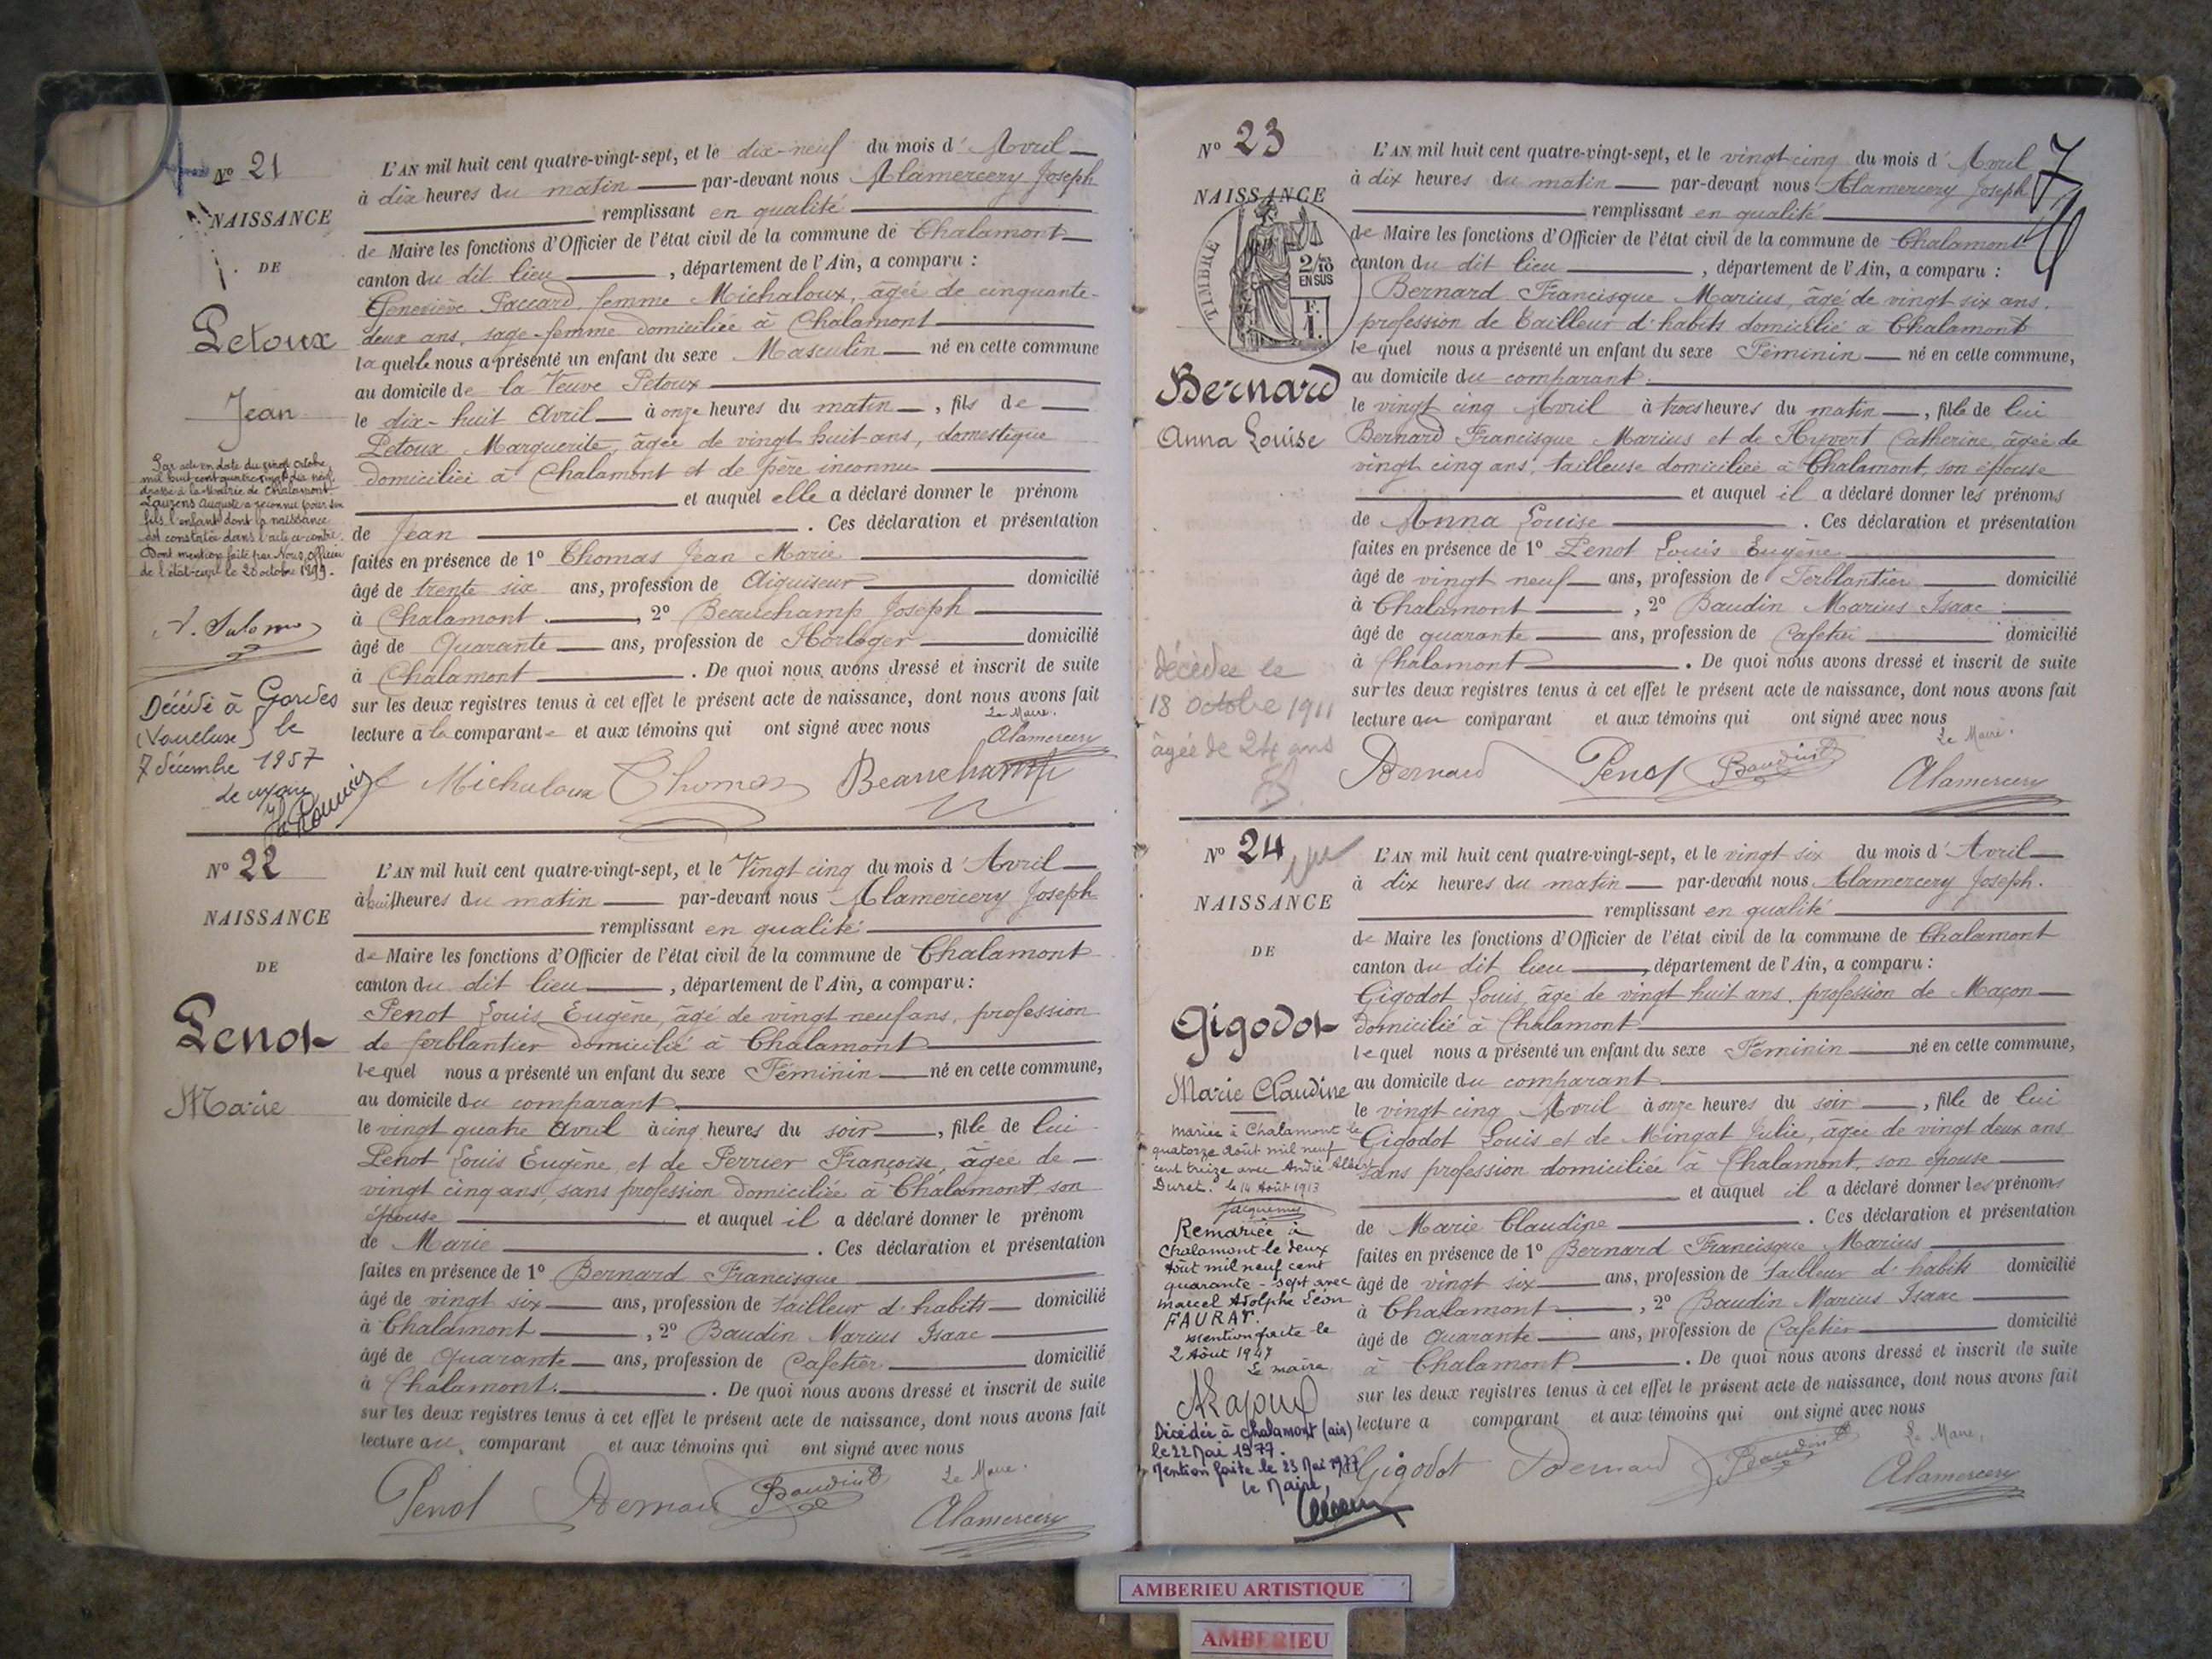 N° 21
NAISSANCE
DE
Petoux
Jean
Par acte en date du vingt octobre
mil huit cent quatre vingt dix neuf
dressé à la Mairie de Chalamont
Laurens Auguste a reconnu pour son
fils l'enfant dont la naissance
est constatée dans l'acte ci-contre.
Dont mention faite par Nous, officier
de l'état-civil le 20 octobre 1899.
Décédé à Gordes
(Vaucluse) le
7 décembre 1957
L'AN mil huit cent quatre-vingt-sept, et le dix-neuf du mois d'Avril
à dix heures du matin par-devant nous Alamercery Joseph
remplissant en qualité
de Maire les fonctions d'Officier de l'état civil de la commune de Chalamont
canton du dit lieu, département de l'Ain, a comparu :
Geneviève Paccard femme Michaloux, âgée de cinquante-
deux ans, sage-femme domiciliée à Chalamont
laquelle nous a présenté un enfant du sexe Masculin né en cette commune
au domicile de la Veuve Petoux
le dix-huit Avril à onze heures du matin, fils de
Petoux Marguerite, âgée de vingt huit ans, domestique
domiciliée à Chalamont et de père inconnu
et auquel elle a déclaré donner le prénom
de Jean. Ces déclaration et présentation
faites en présence de 1° Thomas Jean Marie
âgé de trente six ans, profession de Aiguiseur domicilié
à Chalamont, 2° Beauchamp Joseph
âgé de Quarante ans, profession de Horloger domicilié
à Chalamont. De quoi nous avons dressé et inscrit de suite
sur les deux registres tenus à cet effet le présent acte de naissance, dont nous avons fait
lecture à la comparante et aux témoins qui ont signé avec nous
Le Maire.
Alamercery
fe Michaloux Thomas Beauchamp
N° 22
NAISSANCE
DE
Penot
Marie
L'AN mil huit cent quatre-vingt-sept, et le Vingt cinq du mois d'Avril
à huit heures du matin par-devant nous Alamercery Joseph
remplissant en qualité
de Maire les fonctions d'Officier de l'état civil de la commune de Chalamont
canton du dit lieu, département de l'Ain, a comparu :
Penot Louis Eugène, âgé de vingt neuf ans, profession
de ferblantier domicilié à Chalamont
lequel nous a présenté un enfant du sexe Féminin né en cette commune,
au domicile du comparant
le vingt quatre Avril à cinq heures du soir, fille de lui
Penot Louis Eugène et de Perrier Françoise, âgée de
vingt cinq ans, sans profession domiciliée à Chalamont son
épouse et auquel il a déclaré donner le prénom
de Marie. Ces déclaration et présentation
faites en présence de 1° Bernard Francisque
âgé de vingt six ans, profession de tailleur d'habits domicilié
à Chalamont, 2° Baudin Marius Isaac
âgé de Quarante ans, profession de Cafetier domicilié
à Chalamont. De quoi nous avons dressé et inscrit de suite
sur les deux registres tenus à cet effet le présent acte de naissance, dont nous avons fait
lecture au comparant et aux témoins qui ont signé avec nous
Le Maire.
Penot Bernard Baudin Alamercery
N° 23
NAISSANCE
TIMBRE
2/10
EN SUS
F.
1.
Bernard
Anna Louise
décédée le
18 octobre 1911
âgée de 24 ans
7
L'AN mil huit cent quatre-vingt-sept, et le vingt cinq du mois d'Avril
à dix heures du matin par-devant nous Alamercery Joseph
remplissant en qualité
de Maire les fonctions d'Officier de l'état civil de la commune de Chalamont
canton du dit lieu, département de l'Ain, a comparu :
Bernard Francisque Marius, âgé de vingt six ans,
profession de tailleur d'habits domicilié à Chalamont
lequel nous a présenté un enfant du sexe Féminin né en cette commune,
au domicile du comparant
le vingt cinq Avril à trois heures du matin, fille de lui
Bernard Francisque Marius et de Hyvert Catherine âgée de
vingt cinq ans, tailleuse domiciliée à Chalamont, son épouse
et auquel il a déclaré donner les prénoms
de Anna Louise. Ces déclaration et présentation
faites en présence de 1° Penot Louis Eugène
âgé de vingt neuf ans, profession de Ferblantier domicilié
à Chalamont, 2° Baudin Marius Isaac
âgé de quarante ans, profession de Cafetier domicilié
à Chalamont. De quoi nous avons dressé et inscrit de suite
sur les deux registres tenus à cet effet le présent acte de naissance, dont nous avons fait
lecture au comparant et aux témoins qui ont signé avec nous
Le Maire.
Bernard Penot Baudin Alamercery
N° 24
NAISSANCE
DE
Gigodot
Marie Claudine
Mariée à Chalamont le
quatorze Août mil neuf
cent treize avec André Albert
Duret. le 14 Août 1913
Jacquemus
Remariée à
Chalamont le deux
Août mil neuf cent
quarante-sept avec
Marcel Adolphe Léon
FAURAT.
Mention faite le
2 Août 1947
Le maire
Décédée à Chalamont (ain)
le 22 Mai 1977.
Mention faite le 23 Mai 1977
le Maire,
L'AN mil huit cent quatre-vingt-sept, et le vingt six du mois d'Avril
à dix heures du matin par-devant nous Alamercery Joseph.
remplissant en qualité
de Maire les fonctions d'Officier de l'état civil de la commune de Chalamont
canton du dit lieu, département de l'Ain, a comparu :
Gigodot Louis, âgé de vingt huit ans, profession de Maçon
domicilié à Chalamont
lequel nous a présenté un enfant du sexe Féminin né en cette commune,
au domicile du comparant
le vingt cinq Avril à onze heures du soir, fille de lui
Gigodot Louis et de Mingat Julie, âgée de vingt deux ans
sans profession domiciliée à Chalamont, son épouse
et auquel il a déclaré donner les prénoms
de Marie Claudine. Ces déclaration et présentation
faites en présence de 1° Bernard Francisque Marius
âgé de vingt six ans, profession de tailleur d'habits domicilié
à Chalamont, 2° Baudin Marius Isaac
âgé de Quarante ans, profession de Cafetier domicilié
à Chalamont. De quoi nous avons dressé et inscrit de suite
sur les deux registres tenus à cet effet le présent acte de naissance, dont nous avons fait
lecture a comparant et aux témoins qui ont signé avec nous
Le Maire,
Gigodot Bernard Baudin Alamercery
AMBERIEU ARTISTIQUE
AMBERIEU